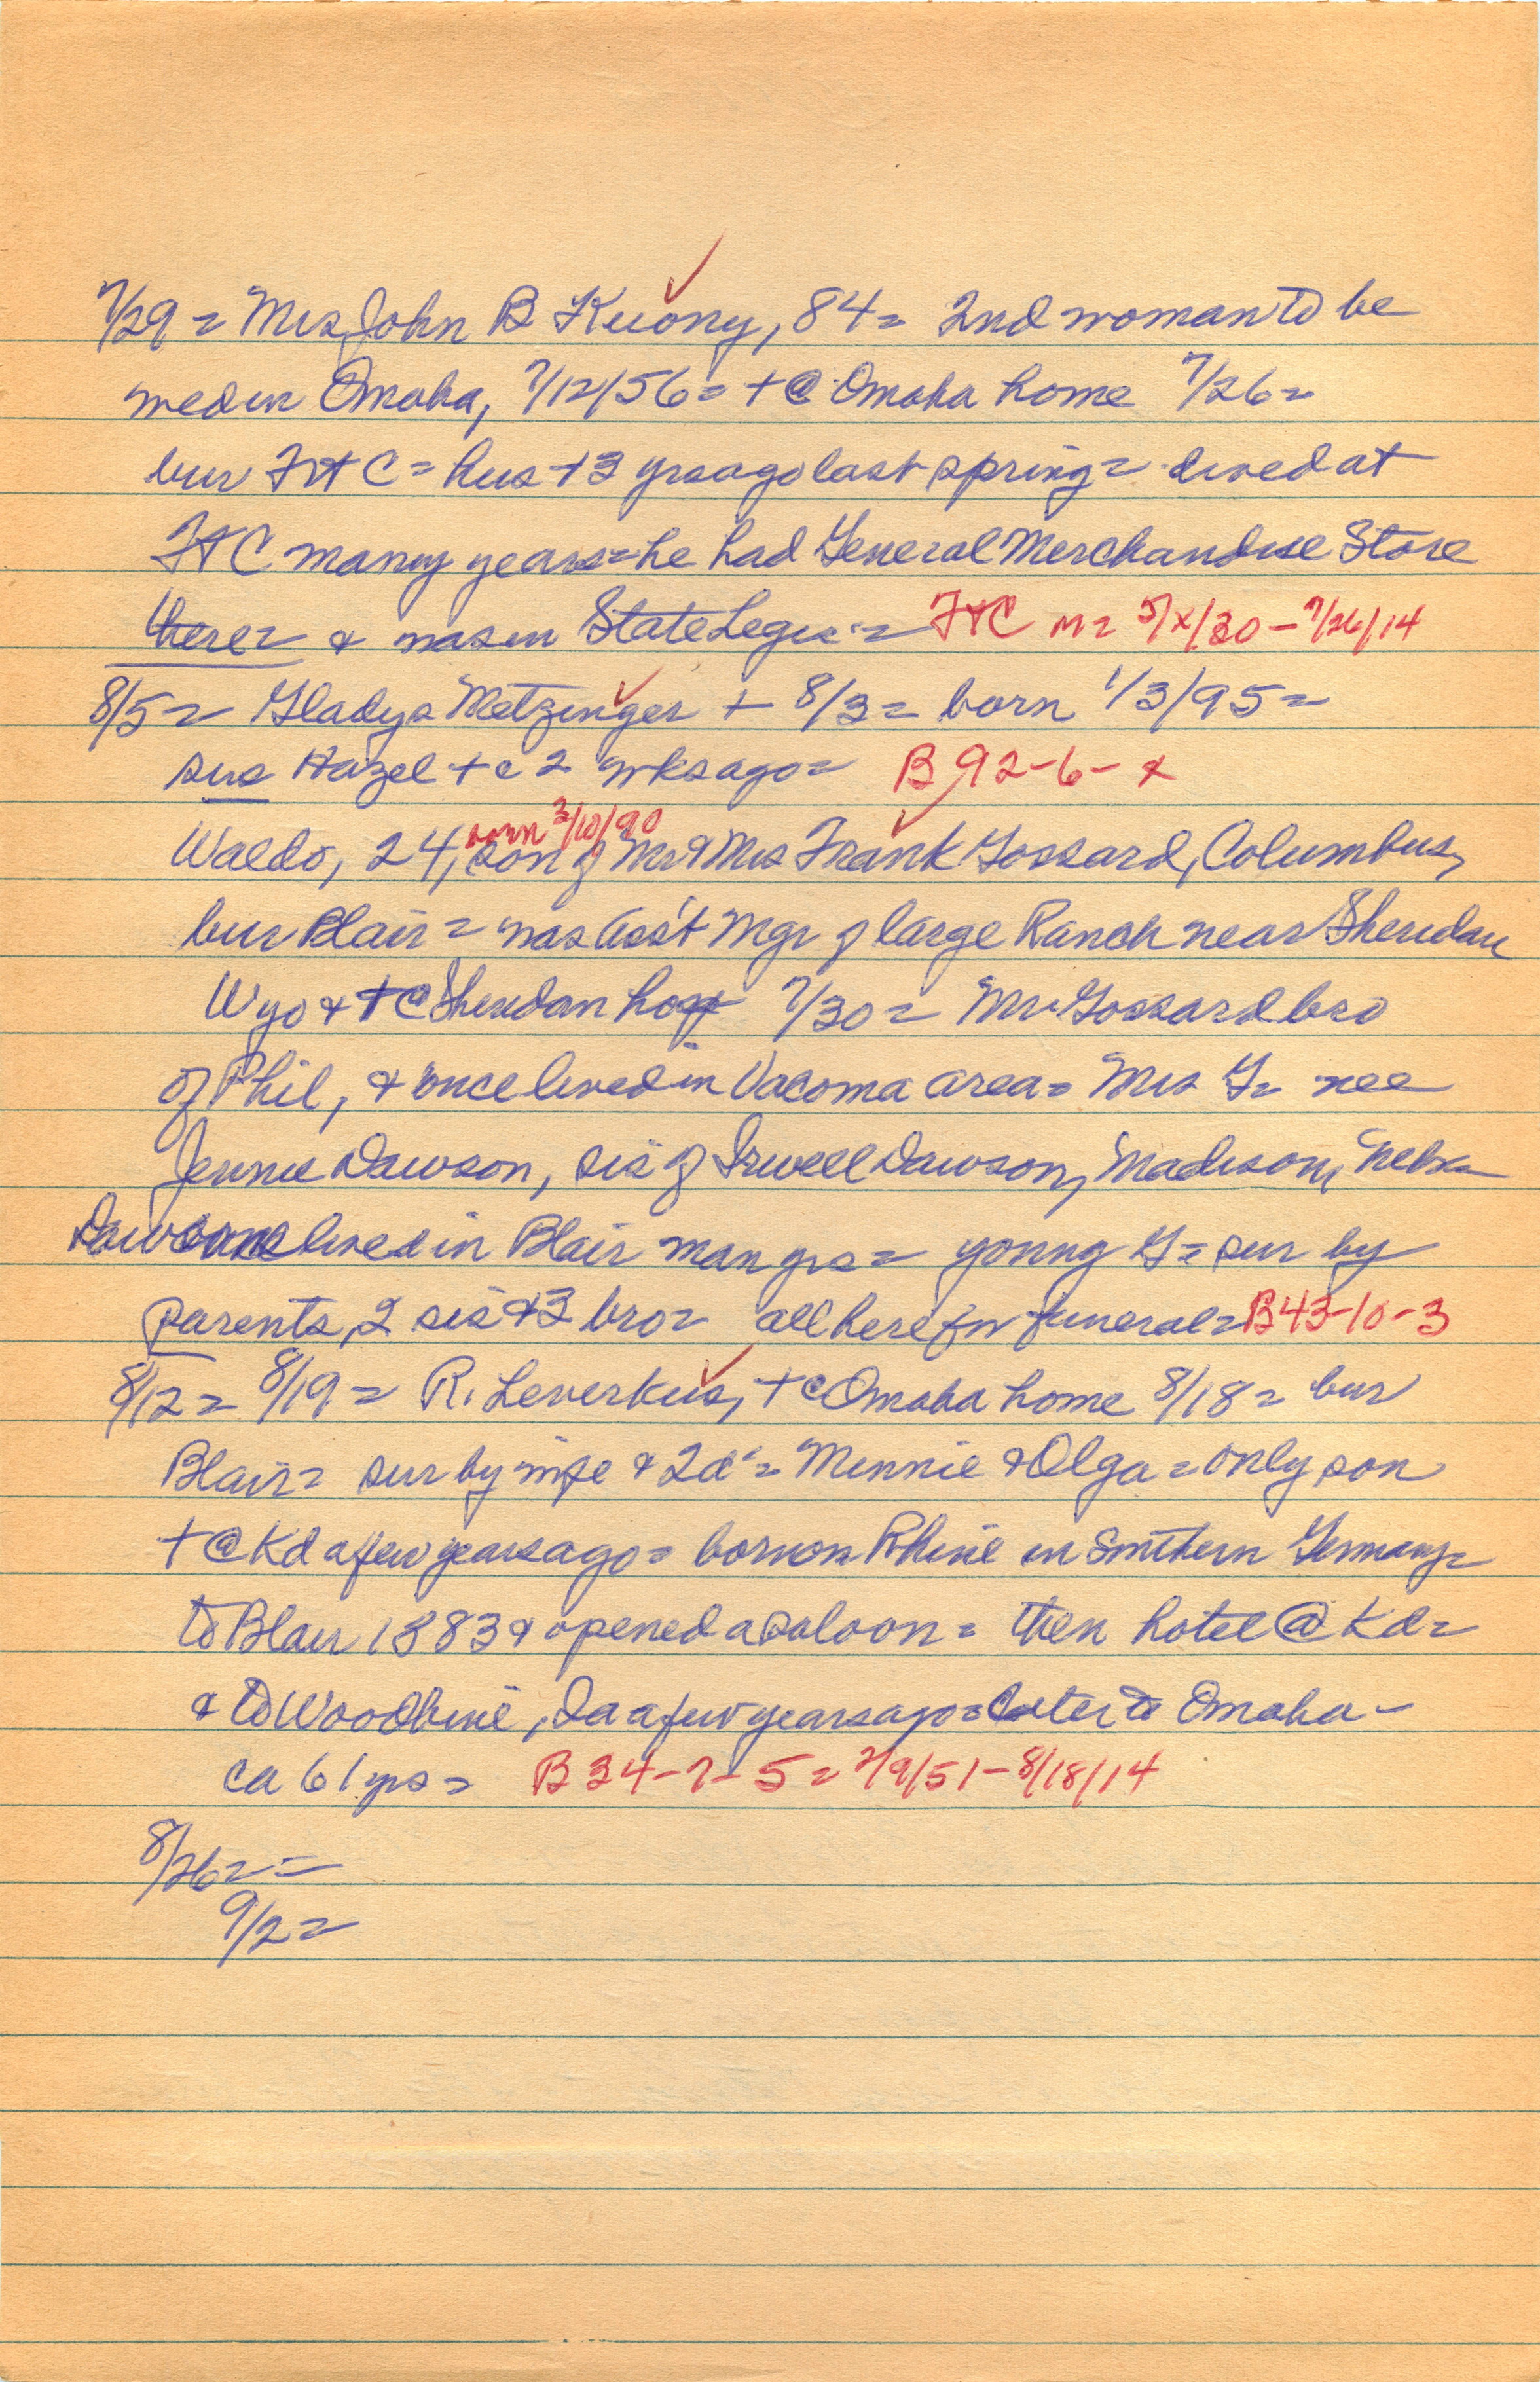 7/29 = Mrs John B Kuony, 84 = 2nd woman to be
wed in Omaha, 7/12/56 = + @ Omaha home 7/26 =
bur Ft C = hus + 3 yrs ago last spring = lived at
Ft C many years = he had General Merchandise Store
there = & was in State Legis = Ft C m = 5/x/30 - 7/26/14
8/5 = Gladys Metzinger + 8/3 = born 1/3/95 =
sis Hazel + c 2 wks ago = B 92-6-x
born 3/10/90
Waldo, 24, son of Mr & Mrs Frank Gossard, Columbus,
bur Blair = was Ass't Mgr of large Ranch near Sheridan
Wyo & + @ Sheridan hosp 7/30 = Mr. Gossard bro
of Phil, & once lived in Vacoma area = Mrs G = nee
Jennie Dawson, sis of Irwell Dawson, Madison, Nebr
Dawsons lived in Blair man yrs = young G = sur by
parents, 2 sis & 3 bro = all here for funeral = B43-10-3
8/12 = 8/19 = R. Leverkus, + @ Omaha home 8/18 = bur
Blair = sur by wife & 2d' = Minnie & Olga = only son
+ @ Kd a few years ago = born on Rhine in Southern Germany =
to Blair 1883 & opened a saloon = then hotel @ Kd =
& to Woodbine, Ia a few years ago = later to Omaha -
ca 61 yrs = B 34-7-5 = 7/9/51 - 8/18/14
8/26 = =
9/2 =